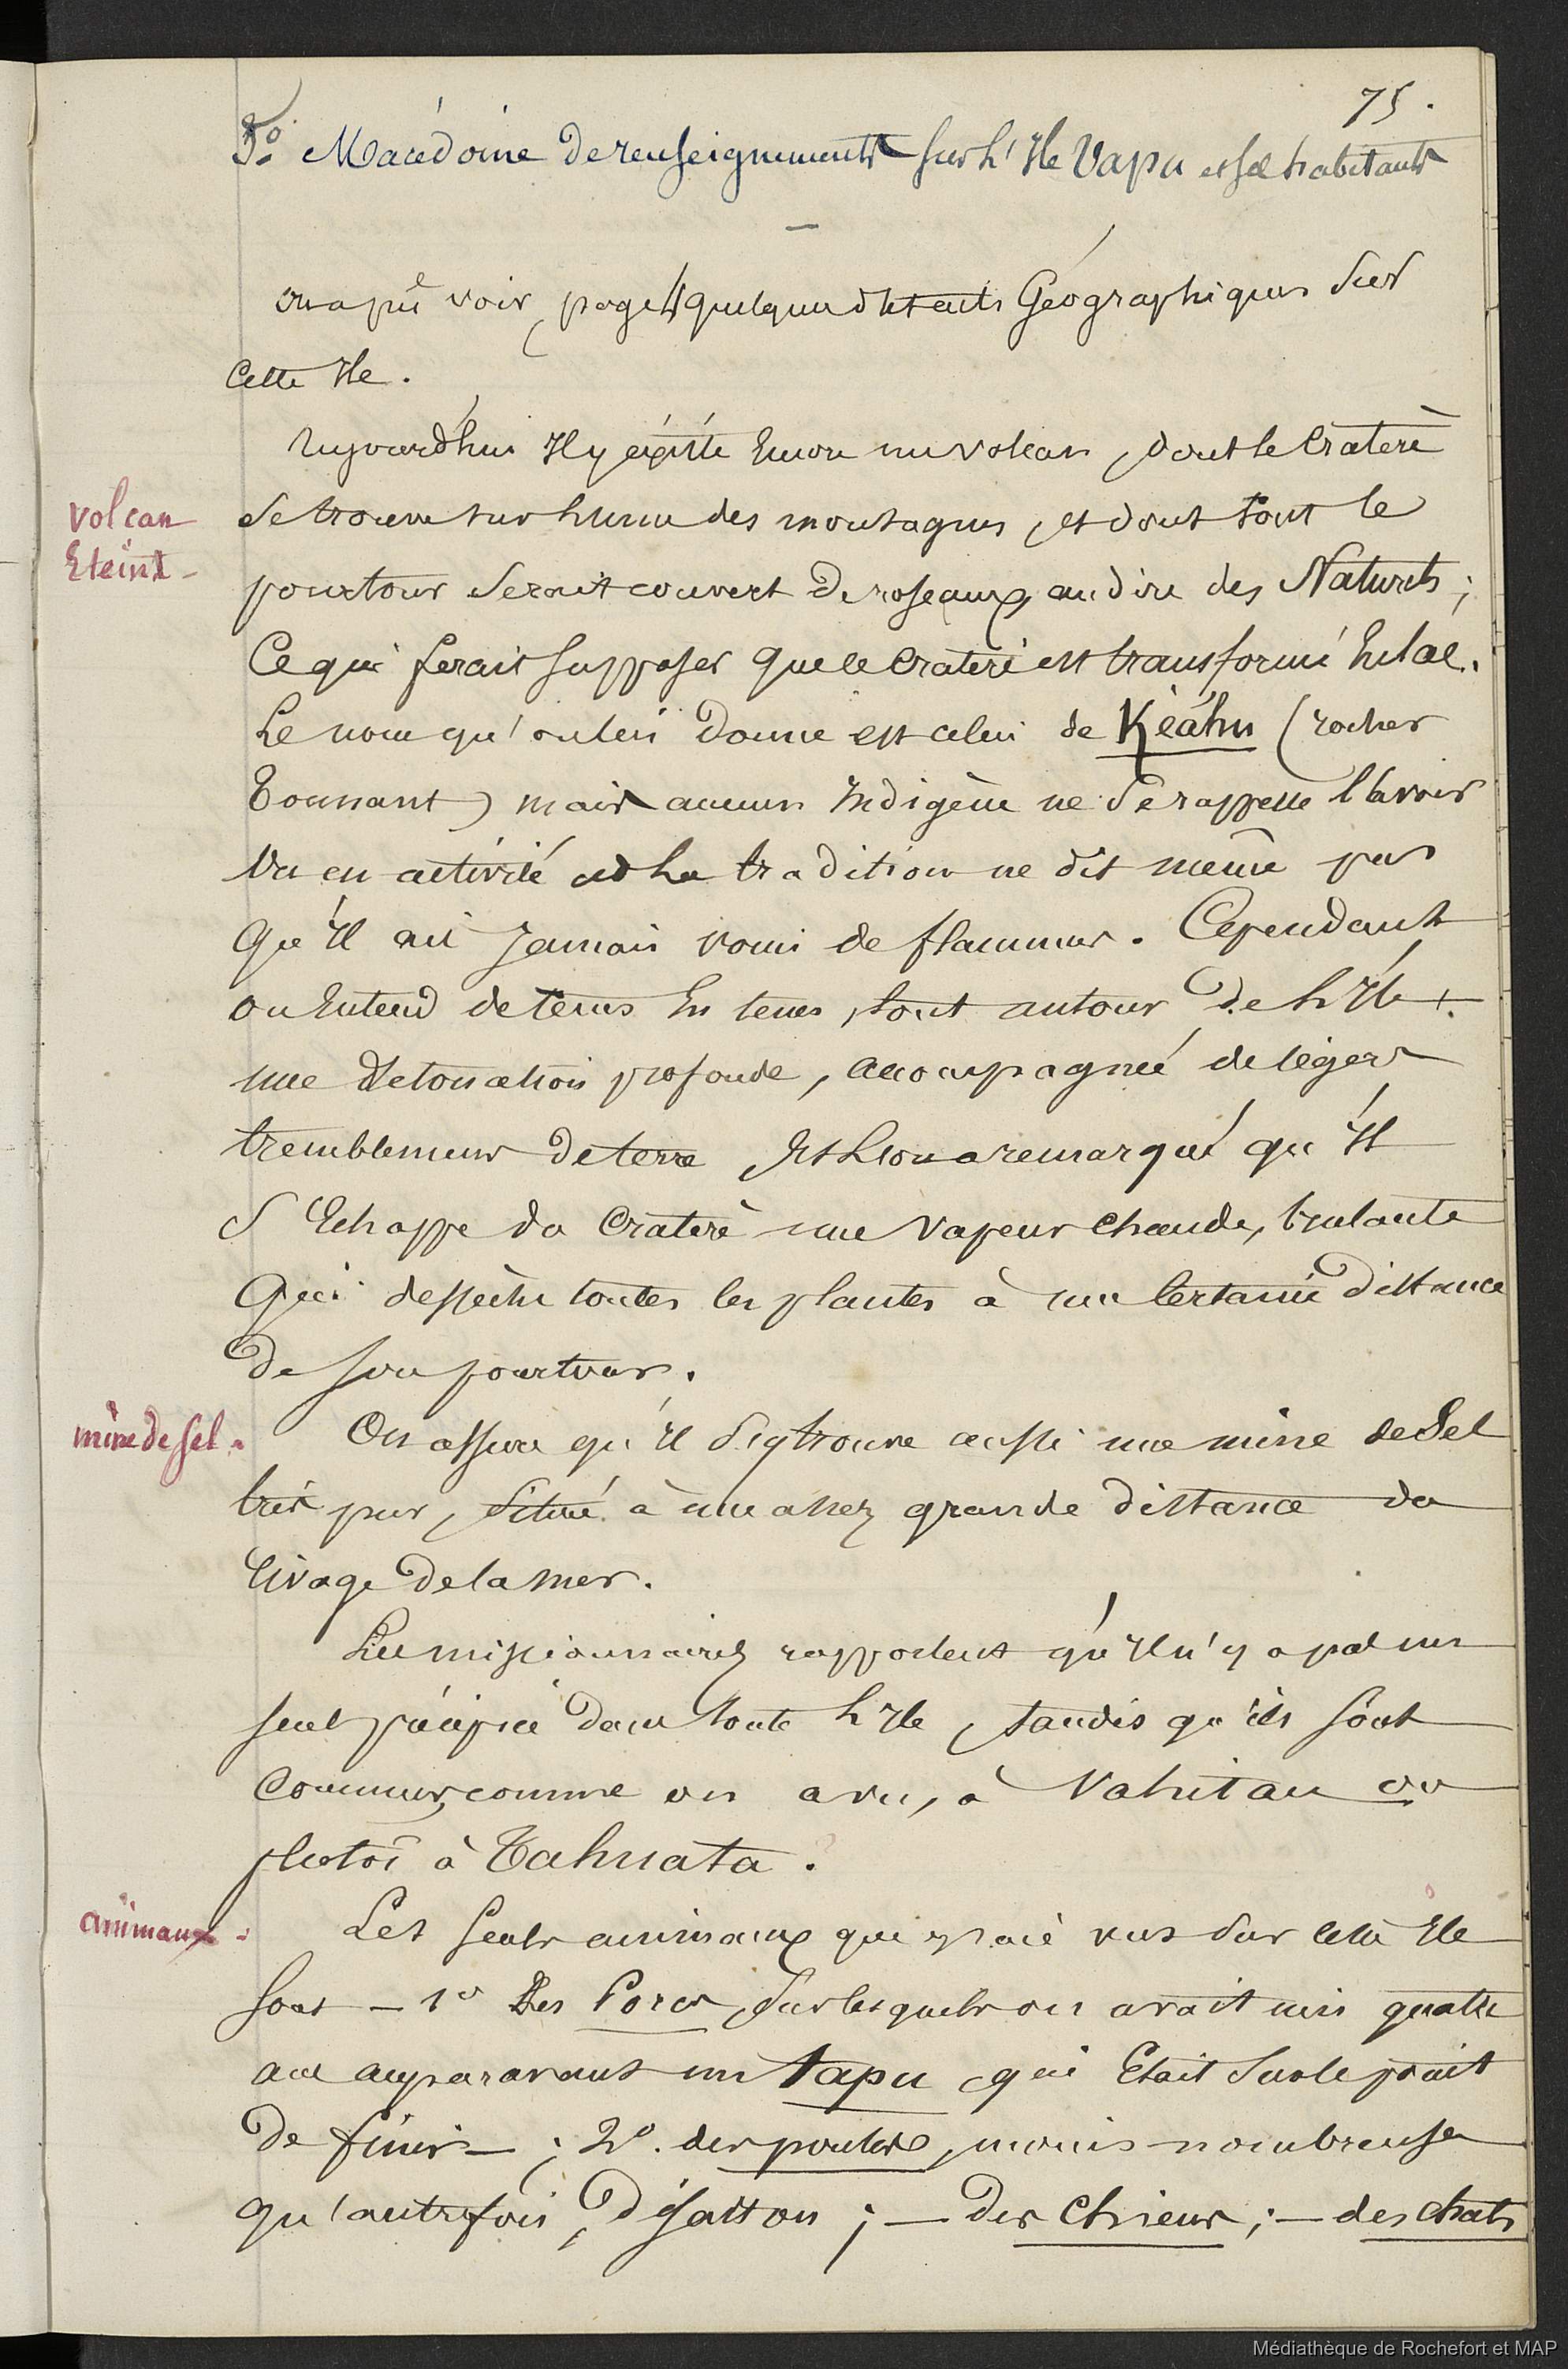 75.
5º Macédoine de renseignements sur l'Ile Vapu et ses habitants
—
on a pu voir, page quelques détails Géographiques sur
cette Ile.
Aujourd'hui Il y éxiste Encore un volcan, dont le Cratère
volcan
Eteint -
se trouve sur l'une des montagnes, et dont tout le
pourtour serait couvert de roseaux, au dire des Naturels;
Ce qui ferait supposer que le Cratère est transformé En lac.
Le nom qu'on lui donne est celui de Kéahu (rocher
Tonnant) mais aucun Indigène ne se rappelle l'avoir
vu en activité et la tradition ne dit même pas
qu'Il ait Jamais vomi de flammes. Cependant
on Entend de tems En tems, tout autour de l'Ile +
une détonation profonde, accompagnée de légers
tremblemens de terre Et l'on a remarqué qu'Il
s'Echappe du Cratère une vapeur chaude, brulante
Qui dessèche toutes les plantes à une Certaine distance
de son pourtour.
mine de sel.
On assure qu'Il s'y trouve aussi une mine de Sel
très pur, située à une assez grande distance du
rivage de la mer.
Les missionnaires rapportent qu'Il n'y a pas un
seul précipice dans toute l'Ile, tandis qu'ils sont
communs, comme on a vu, à Vahitau ou
plutôt à Tahuata.
animaux -
Les seuls animaux que j'y aie vus sur cette Ile
sont — 1º Des Porcs, sur lesquels on avait mis quatre
ans auparavant un tapu qui Etait sur le point
de finir — ; 2º. des poules, moins nombreuses
qu'autrefois, disait on ; — Des Chiens ; — des chats
Médiathèque de Rochefort et MAP